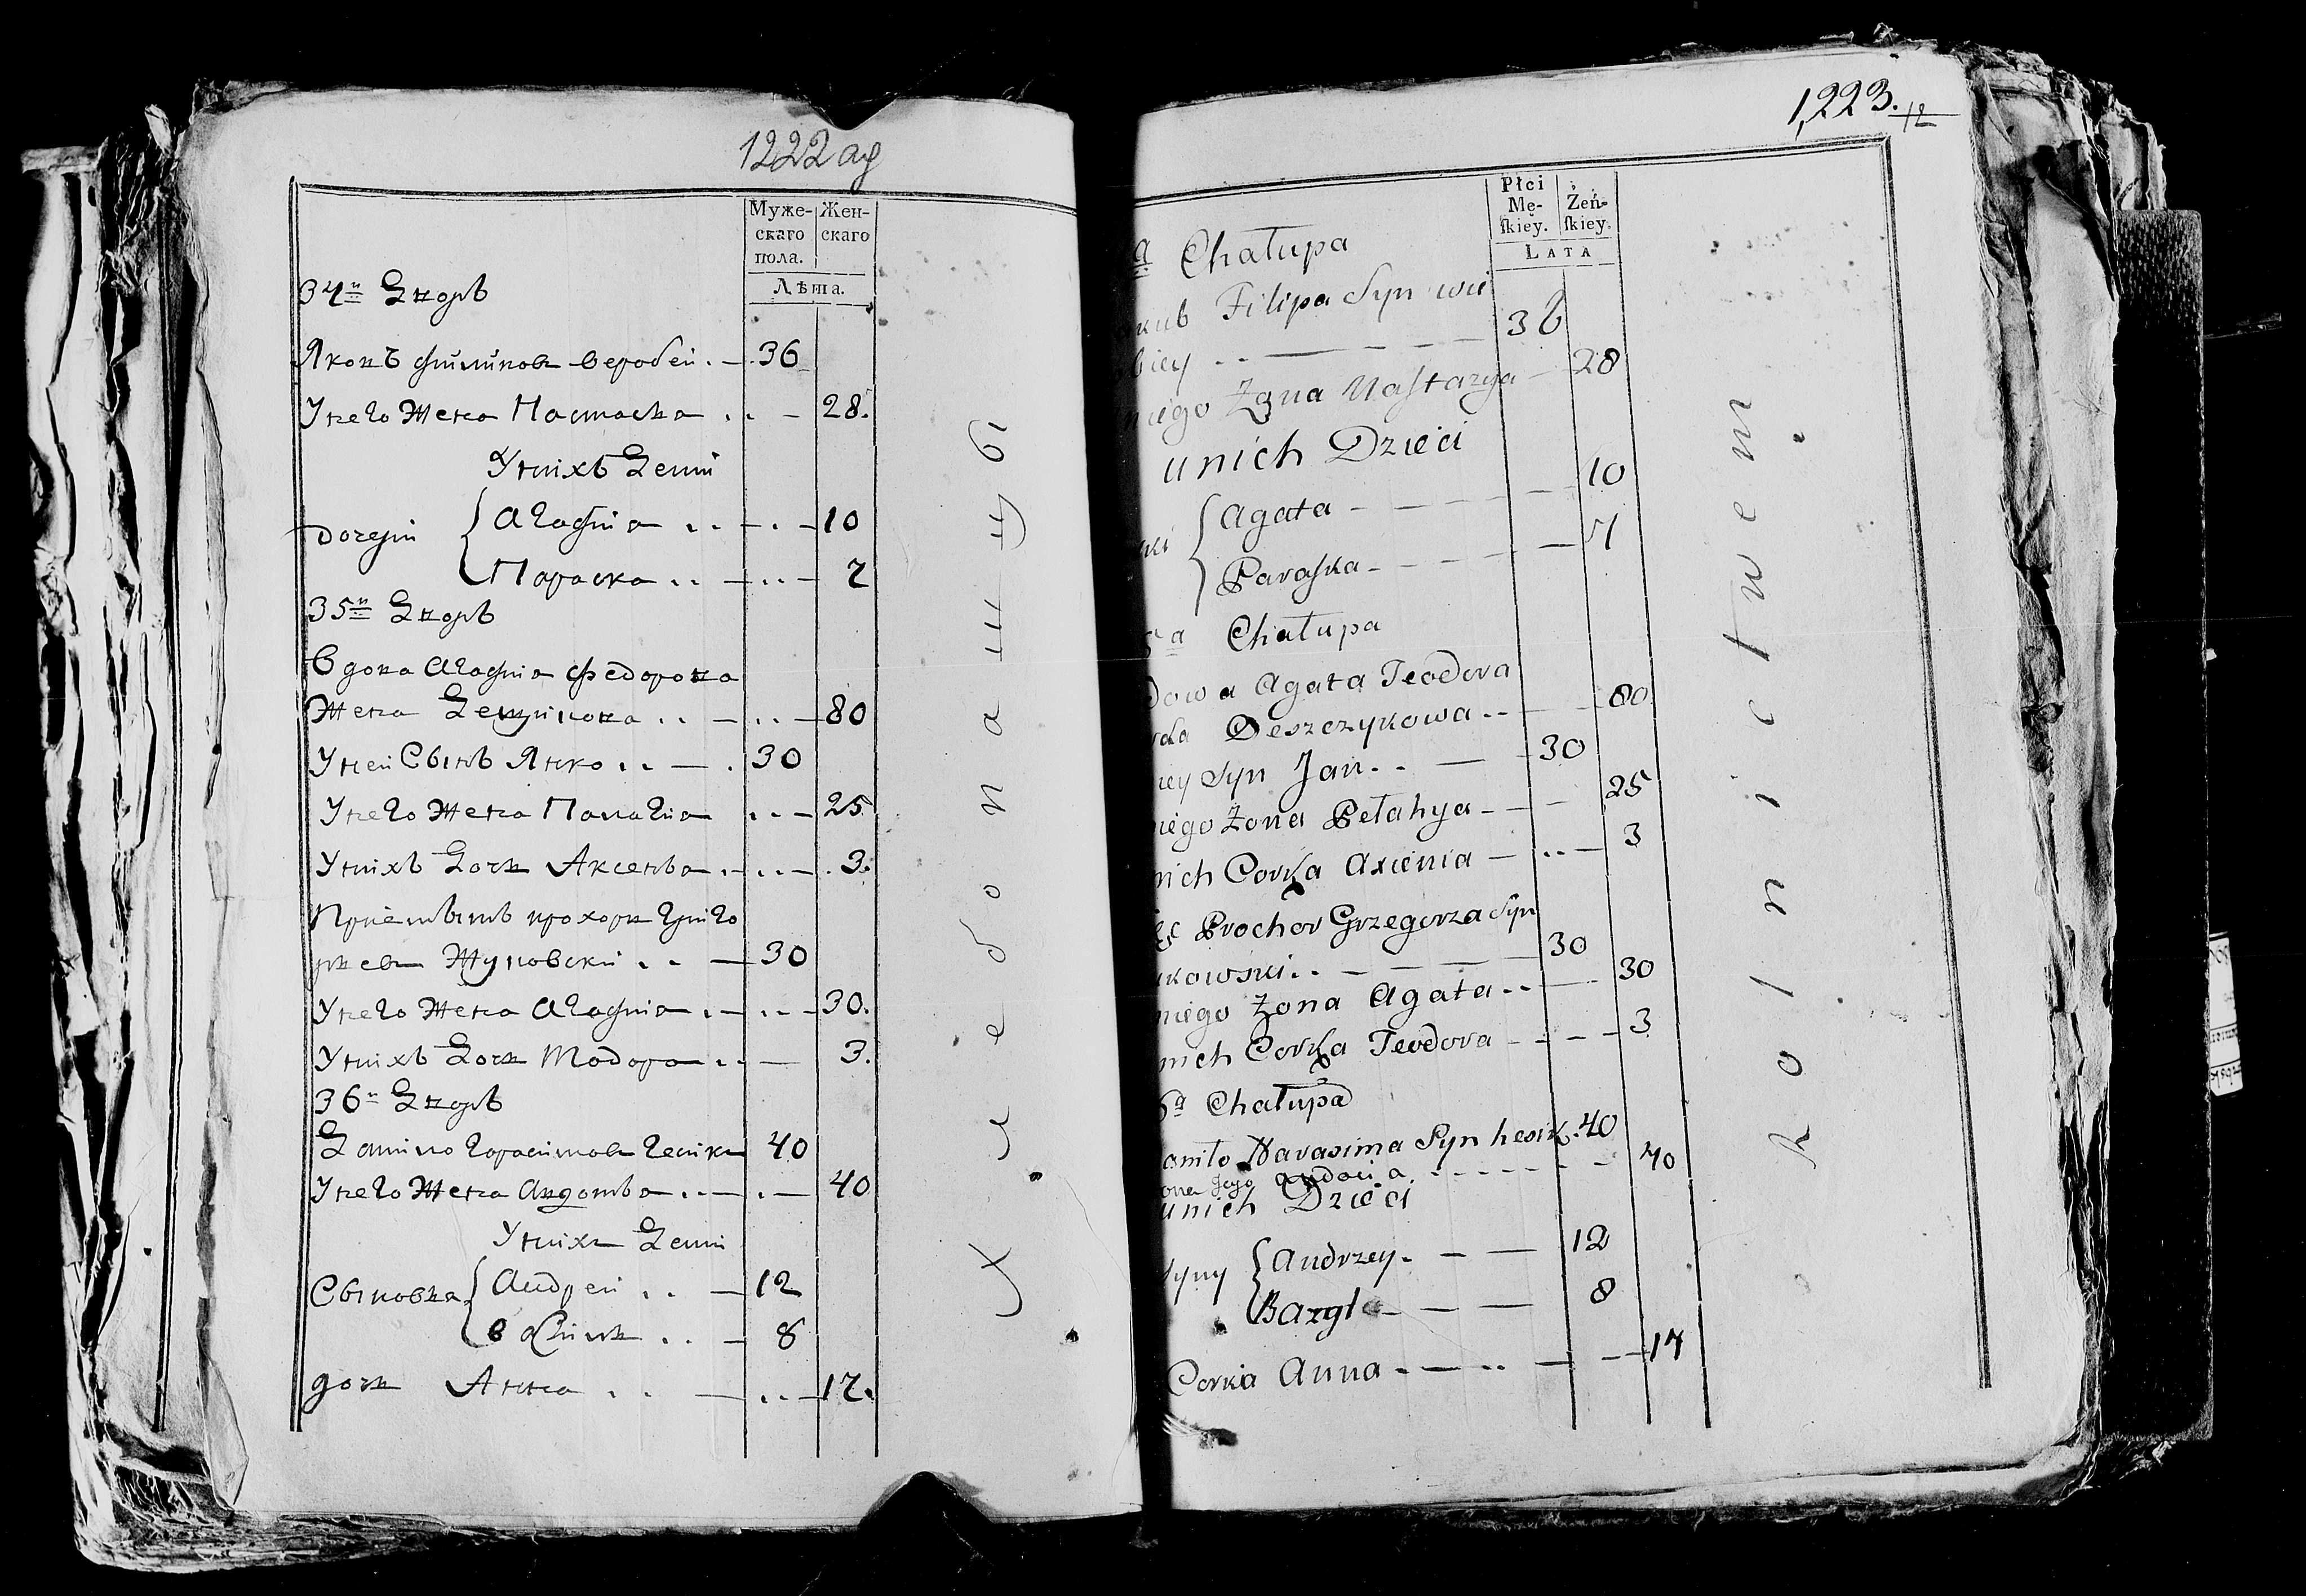 1222 ад
Муже-
скаго
пола.
Жен-
скаго
Лѣта.
34й Дворъ
Яковъ Филиповъ Воробей . — . 36
У него Жена Настасья . . — 28.
У нихъ Дети
Дочери { Агафия . . — . . — 10
Параска . . — . . — 7
35й Дворъ
Вдова Агафия Федорова
Жена Дещикова . . — . . — 80
У ней Сынъ Янко . . — . 30
У него Жена Палагия . . — 25
У нихъ Дочь Аксенья . — . . — . 3.
Приемышъ Прохоръ Григо
рьевъ Жуковски . . — 30
У него Жена Агафия . — . . — 30.
У нихъ Дочь Тодора . . — 3.
36й Дворъ
Данило Гарасимовъ 40
У него Жена Авдотья . . — . — 40
У нихъ Дети
Сыновья { Андрей . . — 12
Василь . . — 8
дочь Анна . . — . . — 17.
Хлебопашцы
1,223. 12
Płci
Mę-
ſkiey.
Żeń-
ſkiey.
LATA
a Chałupa
kub Filipa Syn
biey . . — — — — 36
niego Żona Naſtazya — 28
u nich Dzieci
ki { Agata - — — — — 10
Paraſka - — — — — 7
5a Chałupa
dowa Agata Teodora
Deszczykowa . . — — 80
niey Syn Jan . . — — 30
niego Żona Pelahya - — — 25
nich Corka Axienia — . . — 3
Prochor Grzegorza Syn
ukowski . . — — — — 30
niego Żona Agata . . — — 30
nich Corka Teodora - — — — 3
6a Chałupa
aniło Harasima Syn 40
ona Jego Audocia . - - - - - — — 40
u nich Dzieci
Syny { Andrzey . — — 12
Bazyl — — — 8
Corka Anna . — . . — — — 17
Rolnictwem